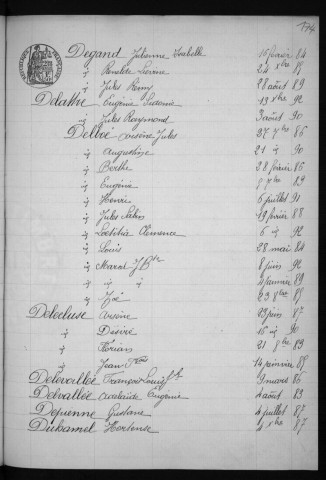 174
Degand Julienne Isabelle 15 février 84
" 24 xbre 85
" Jules Remy 28 août 89
Delattre Eugénie Sidonie 13 xbre 92
" Jules Raymond 3 août 90
Delbée Arsène Jules 27 7bre 86
" Augustine 21 " 90
" Berthe 28 février 86
" Eugénie 89
" Henri 6 juillet 91
" Jules 19 février 88
" Laetitia Clémence 6 " 92
" Louis 28 mai 84
" Marcel J Bte 8 juin 92
" " " janvier 89
" Zoé 23 8bre 85
Delecluse Arsène 23 juin 87
" Désiré 15 " 90
" Florian 21 8bre 89
" Jean 14 janvier 85
Delevallée François Louis 9 mars 86
Delvallée Adélaïde Eugénie 4 août 83
Depienne Gustave 4 juillet 87
Duhamel Hortense 4 xbre 87